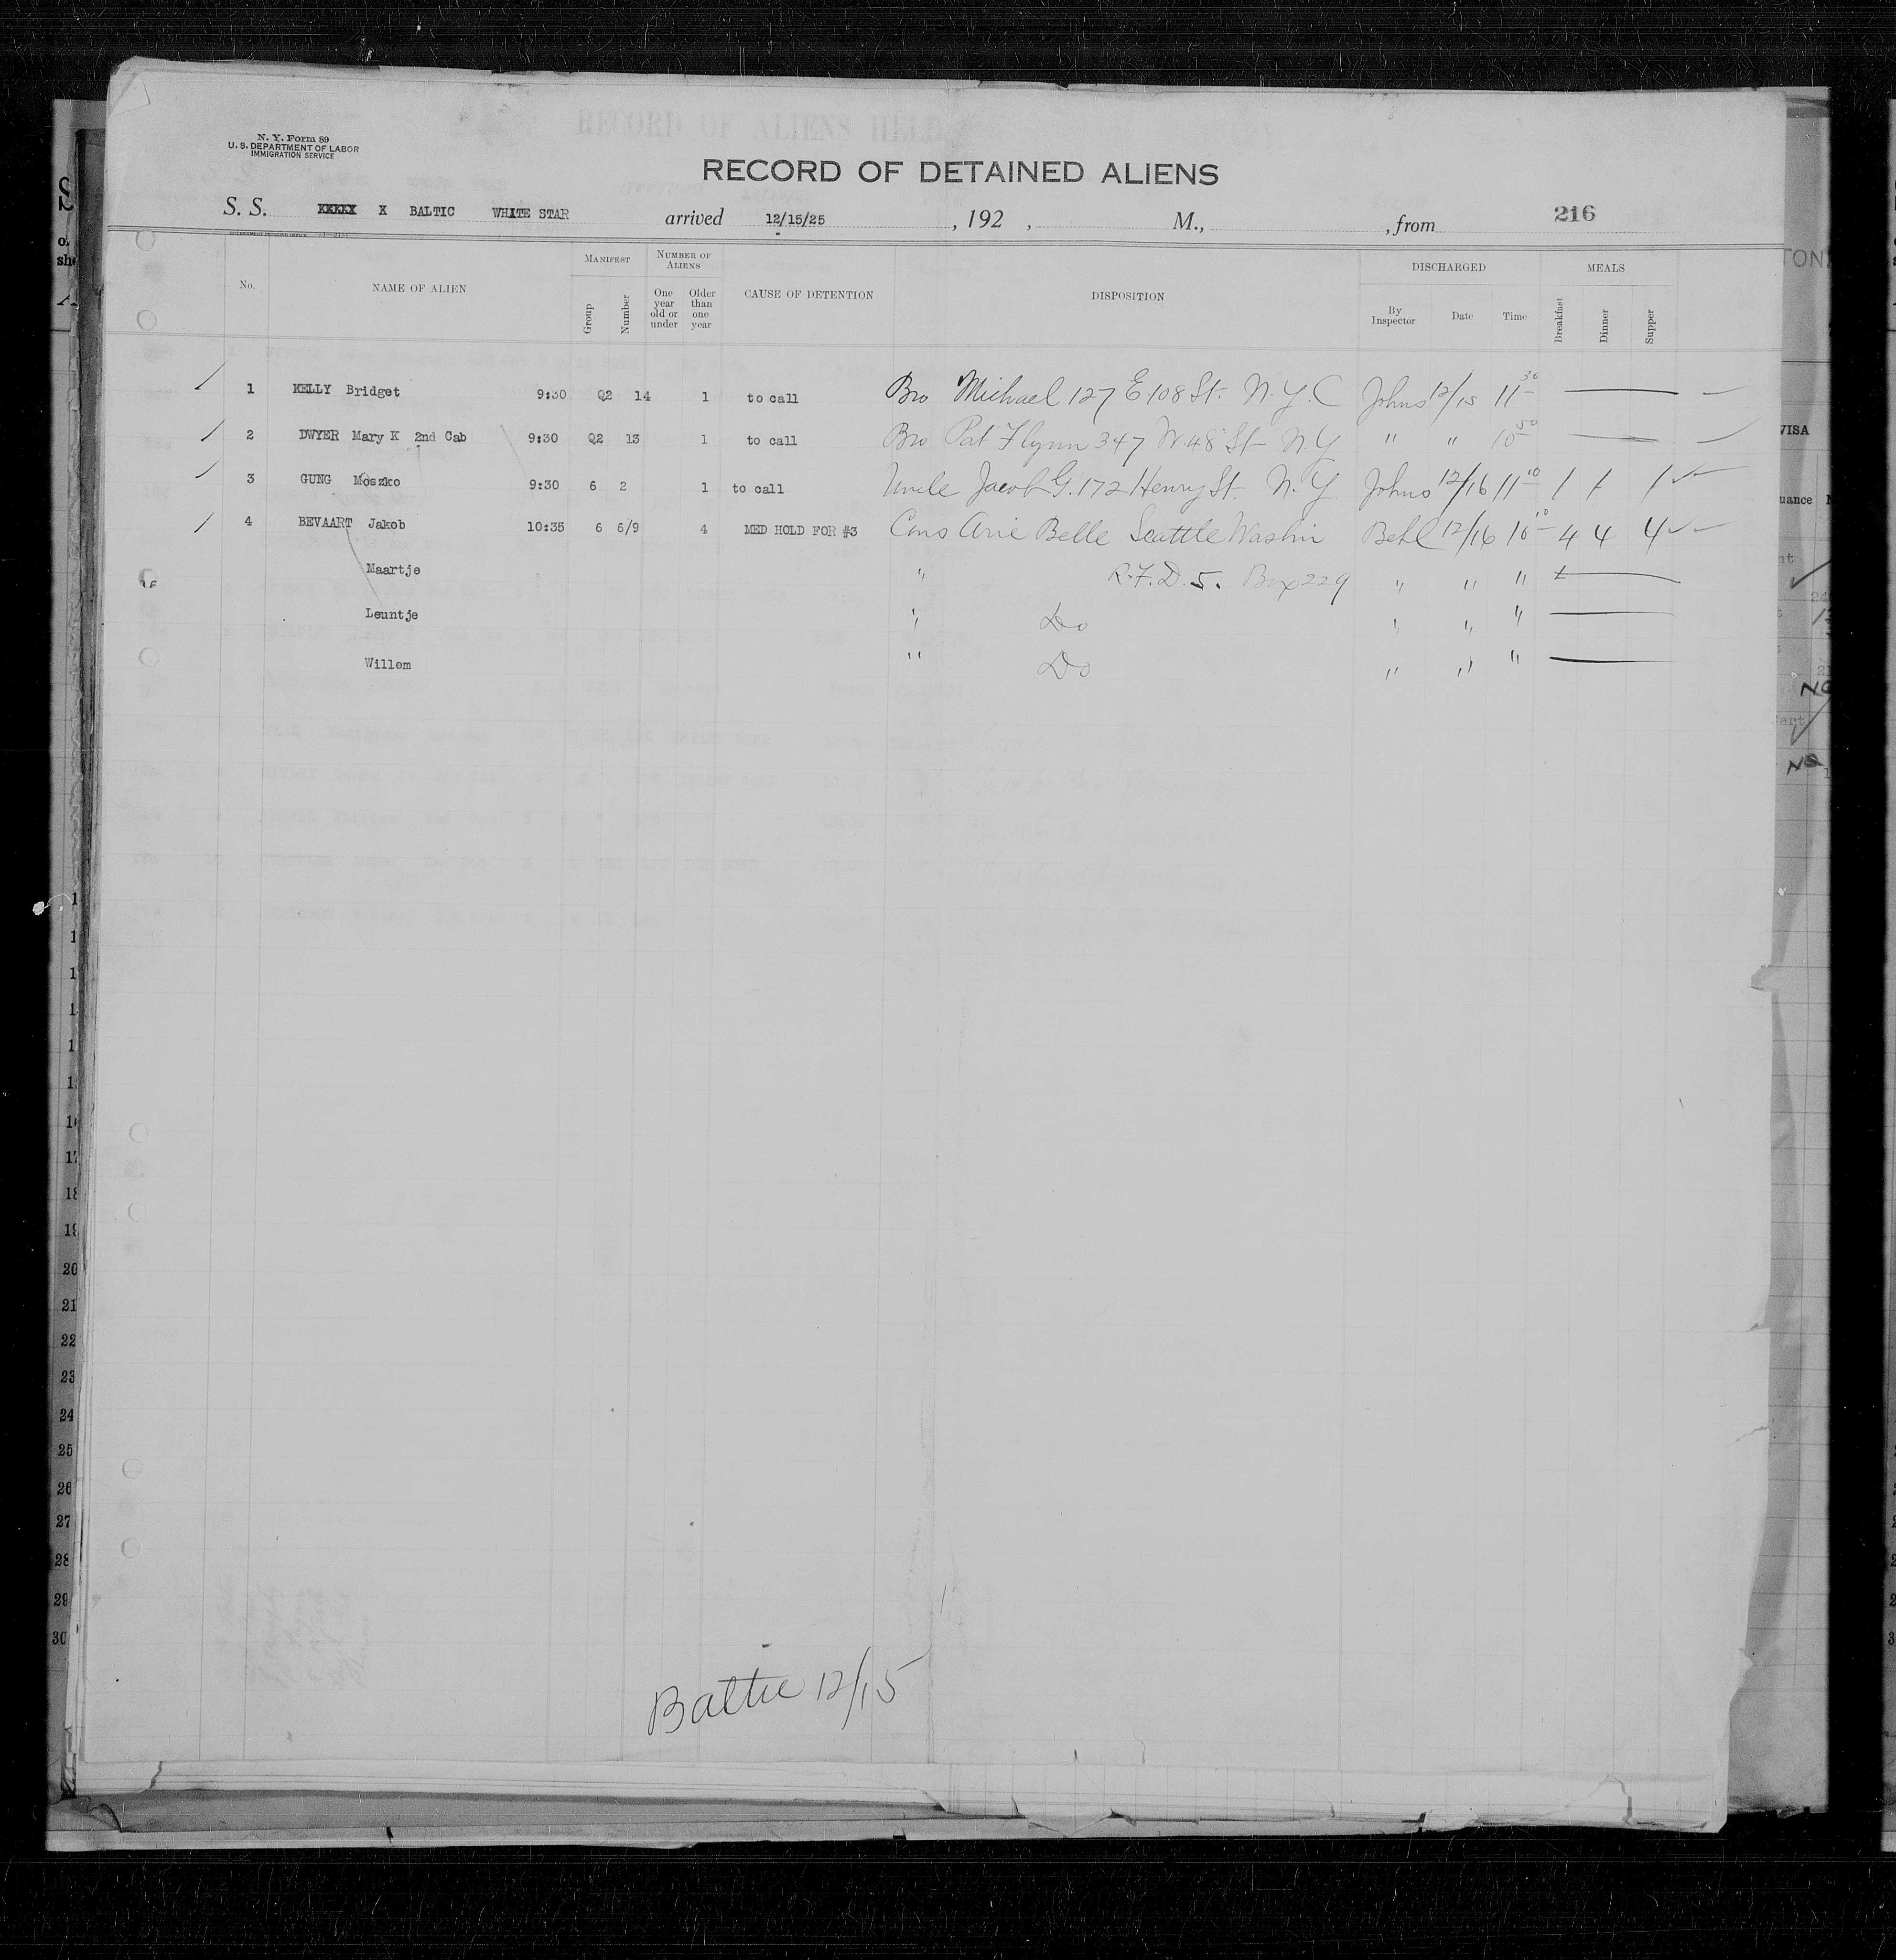 N. Y. Form 89
U. S. DEPARTMENT OF LABOR
IMMIGRATION SERVICE
RECORD OF DETAINED ALIENS
S. S. XXXXX X BALTIC WHITE STAR arrived 12/15/25, 192 , M., , from 216
No. NAME OF ALIEN MANIFEST Group Number NUMBER OF ALIENS One year old or under Older than one year CAUSE OF DETENTION DISPOSITION DISCHARGED By Inspector Date Time MEALS Breakfast Dinner Supper
1 KELLY Bridget 9:30 Q2 14 1 to call Bro Michael 127 E 108 St. N.Y.C Johns 12/15 11 30
2 DWYER Mary K 2nd Cab 9:30 Q2 13 1 to call Bro Pat Flynn 347 W 48 St N.Y " " 10 50
3 GUNG Moszko 9:30 6 2 1 to call Uncle Jacob G. 172 Henry St. N.Y Johns 12/16 11 10 1 1 1
4 BEVAART Jakob 10:35 6 6/9 4 MED HOLD FOR #3 Cons Arie Belle Seattle Washin 12/16 10 10 4 4 4
Maartje " R.F.D. 5. Box 229 " " "
Leuntje " Do " " "
Willem " Do " " "
Baltic 12/15